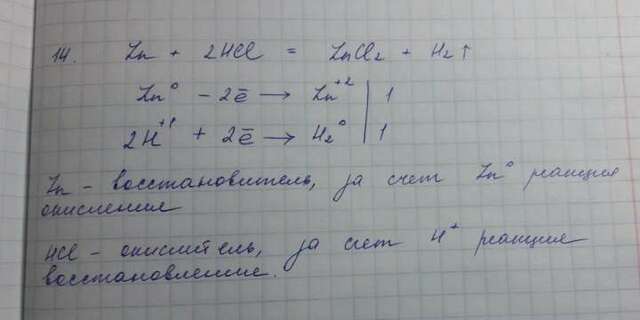 14. Zn + 2HCl = ZnCl₂ + H₂↑
Zn⁰ − 2ē → Zn⁺² | 1
2H⁺¹ + 2ē → H₂⁰ | 1
Zn – восстановитель, за счет Zn⁰ реакция
окисления
HCl – окислитель, за счет H⁺ реакция
восстановление.